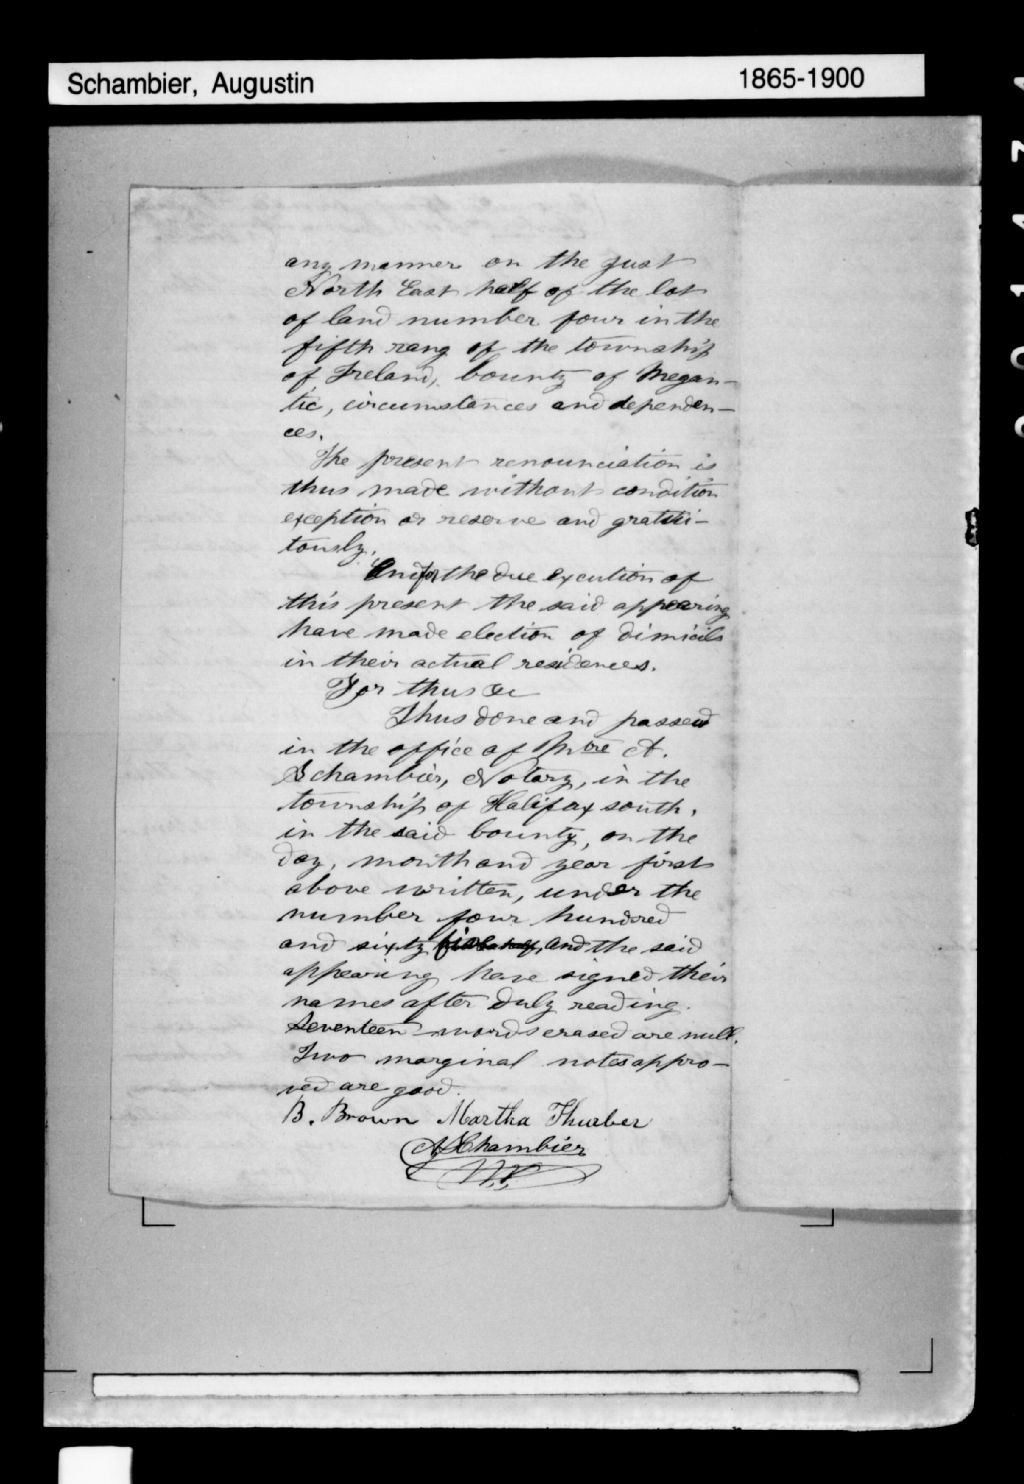 Schambier, Augustin 1865-1900
any manner on the just
North East half of the lot
of land number four in the
fifth rang of the township
of Ireland, County of Megan-
tic, circumstances and dependen-
ces.
The present renounciation is
thus made without condition
exception or reserve and gratiui-
tously.
And for the due execution of
this present the said appearing
have made election of dimicils
in their actual residences.
For thus &c
Thus done and passed
in the office of Mtre A.
Schambier, Notary, in the
township of Halifax south,
in the said County, on the
day, month and year first
above written, under the
number four hundred
and sixty and the said
appearing have signed their
names after duly reading.
Seventeen words erased are null.
Two marginal notes appro-
ved are good.
B. Brown Martha Thurber
A Schambier
N.P.